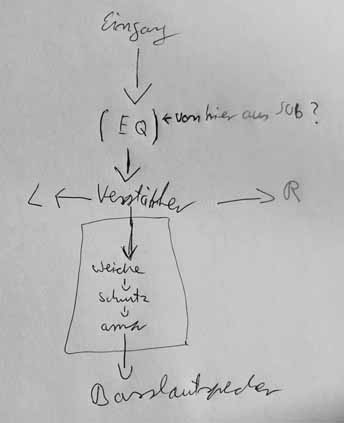 Eingang
(EQ) ← von hier aus SUB?
L ← Verstärker → R
weiche
schutz
amp
Basslautsprecher